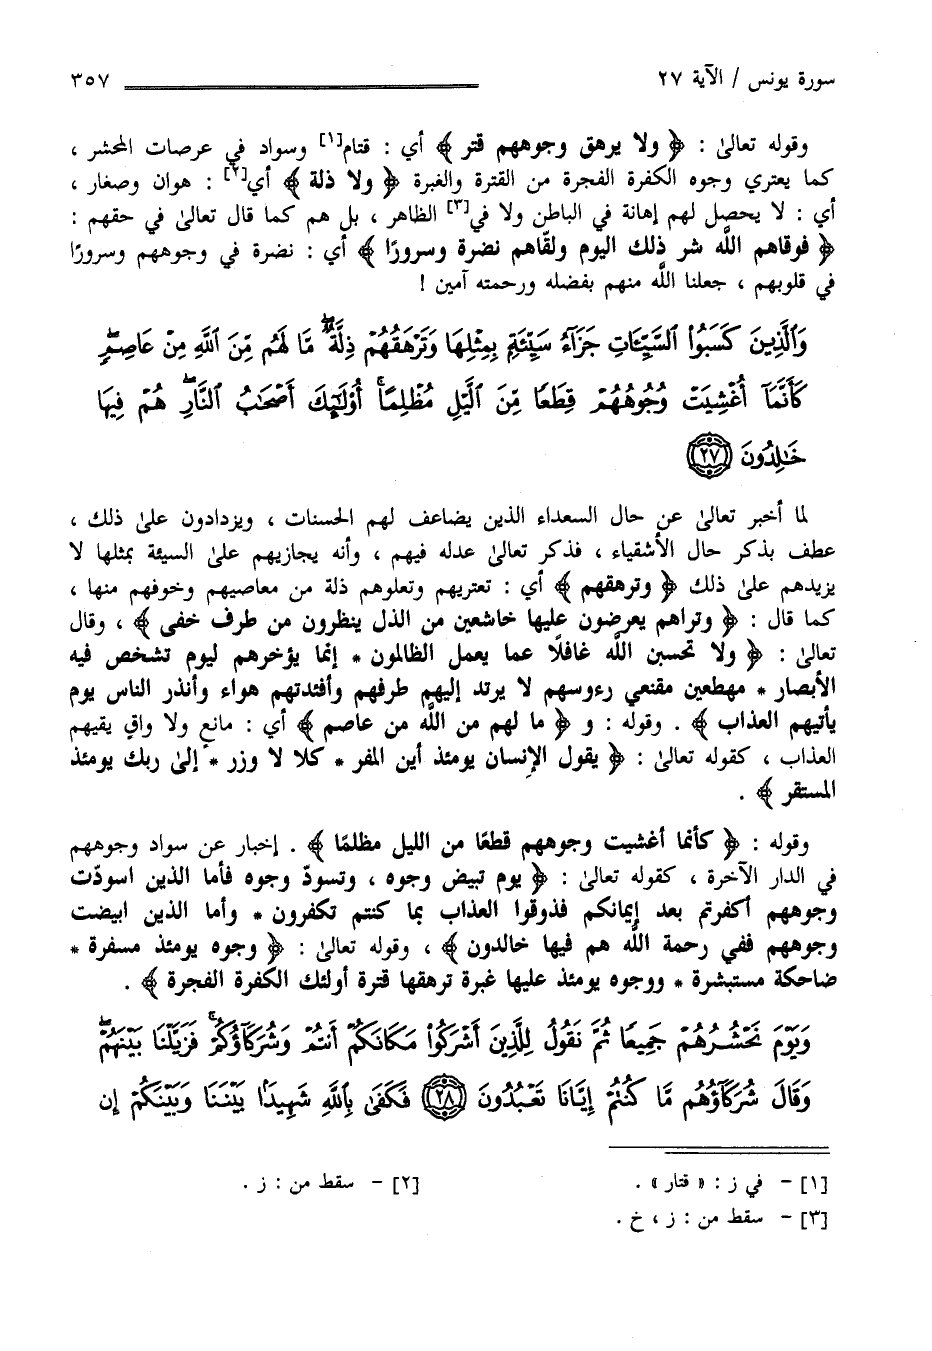 سورة يونس / الآية ٢٧ ٣٥٧
وقوله تعالىٰ : ﴿ ولا يرهق وجوههم قتر ﴾ أي : قتام[١] وسواد في عرصات المحشر ،
كما يعتري وجوه الكفرة الفجرة من القترة والغبرة ﴿ ولا ذلة ﴾ أي[٢] : هوان وصغار ،
أي : لا يحصل لهم إهانة في الباطن ولا في[٣] الظاهر ، بل هم كما قال تعالىٰ في حقهم :
﴿ فوقاهم اللَّه شر ذلك اليوم ولقّاهم نضرة وسرورًا ﴾ أي : نضرة في وجوههم وسرورًا
في قلوبهم ، جعلنا اللَّه منهم بفضله ورحمته آمين !
وَٱلَّذِينَ كَسَبُوا۟ ٱلسَّيِّـَٔاتِ جَزَآءُ سَيِّئَةٍۭ بِمِثْلِهَا وَتَرْهَقُهُمْ ذِلَّةٌ ۖ مَّا لَهُم مِّنَ ٱللَّهِ مِنْ عَاصِمٍ ۖ
كَأَنَّمَآ أُغْشِيَتْ وُجُوهُهُمْ قِطَعًا مِّنَ ٱلَّيْلِ مُظْلِمًا ۚ أُو۟لَـٰٓئِكَ أَصْحَـٰبُ ٱلنَّارِ ۖ هُمْ فِيهَا
خَـٰلِدُونَ ﴿٢٧﴾
لما أخبر تعالىٰ عن حال السعداء الذين يضاعف لهم الحسنات ، ويزدادون علىٰ ذلك ،
عطف بذكر حال الأشقياء ، فذكر تعالىٰ عدله فيهم ، وأنه يجازيهم علىٰ السيئة بمثلها لا
يزيدهم علىٰ ذلك ﴿ وترهقهم ﴾ أي : تعتريهم وتعلوهم ذلة من معاصيهم وخوفهم منها ،
كما قال : ﴿ وتراهم يعرضون عليها خاشعين من الذل ينظرون من طرف خفى ﴾ ، وقال
تعالىٰ : ﴿ ولا تحسبن اللَّه غافلًا عما يعمل الظالمون * إنما يؤخرهم ليوم تشخص فيه
الأبصار * مهطعين مقنعي رءوسهم لا يرتد إليهم طرفهم وأفئدتهم هواء وأنذر الناس يوم
يأتيهم العذاب ﴾ . وقوله : و ﴿ ما لهم من اللَّه من عاصم ﴾ أي : مانعٍ ولا واقٍ يقيهم
العذاب ، كقوله تعالىٰ : ﴿ يقول الإنسان يومئذ أين المفر * كلا لا وزر * إلىٰ ربك يومئذ
المستقر ﴾ .
وقوله : ﴿ كأنما أغشيت وجوههم قطعًا من الليل مظلمًا ﴾ . إخبار عن سواد وجوههم
في الدار الآخرة ، كقوله تعالىٰ : ﴿ يوم تبيض وجوه ، وتسودّ وجوه فأما الذين اسودّت
وجوههم أكفرتم بعد إيمانكم فذوقوا العذاب بما كنتم تكفرون * وأما الذين ابيضت
وجوههم ففي رحمة اللَّه هم فيها خالدون ﴾ ، وقوله تعالىٰ : ﴿ وجوه يومئذ مسفرة *
ضاحكة مستبشرة * ووجوه يومئذ عليها غبرة ترهقها قترة أولئك الكفرة الفجرة ﴾ .
وَيَوْمَ نَحْشُرُهُمْ جَمِيعًا ثُمَّ نَقُولُ لِلَّذِينَ أَشْرَكُوا۟ مَكَانَكُمْ أَنتُمْ وَشُرَكَآؤُكُمْ ۚ فَزَيَّلْنَا بَيْنَهُمْ ۖ
وَقَالَ شُرَكَآؤُهُم مَّا كُنتُمْ إِيَّانَا تَعْبُدُونَ ﴿٢٨﴾ فَكَفَىٰ بِٱللَّهِ شَهِيدًۢا بَيْنَنَا وَبَيْنَكُمْ إِن
[١] - في ز : « قتار » . [٢] - سقط من : ز .
[٣] - سقط من : ز ، خ .